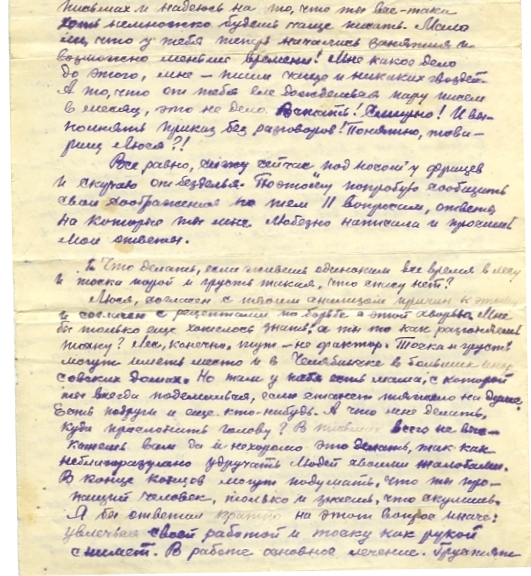 письмах и надеюсь на то, что ты все-таки
хоть немножко будешь чаще писать. Мало
ли, что у тебя теперь начались занятия и
возможно меньше времени! Мне какое дело
до этого, мне — пиши чаще и никаких гвоздей.
А то, что от тебя еле дождешься пару писем
в месяц, это не дело. Встать! Смирно! И вы-
полнять приказ без разговоров! Понятно, това-
рищ Люся?!
Все равно, сижу сейчас под носом у фрицев
и скучаю от безделья. Поэтому попробую сообщить
свои соображения по тем 11 вопросам, ответы
на которые ты мне любезно написала и просишь
мои ответы.
1. Что делать, если живешь одиноким все время в лесу
и тоска порой и грусть такая, что спасу нет?
Люся, согласен с твоим причин к этому
и согласен с рецептами по борьбе с этой хворью. Мне
бы только еще хотелось знать, а ты то как разгоняешь
тоску? Лес, конечно, тут — не фактор. Тоска и грусть
могут иметь место и в Челябинске в больших
совских домах. Но там у тебя есть мама, с которой
ты всегда поделишься, если станет тяжело на душе.
Есть подруги и еще кто-нибудь. А что мне делать,
куда преклонить голову? В письмах всего не вы-
кажешь вам да и нехорошо это делать, так как
неблагоразумно удручать людей своими жалобами.
В конце концов могут подумать, что ты про-
пащий человек, только и знаешь, что скулишь.
Я бы ответил кратко на этот вопрос иначе:
увлечься своей работой и тоску как рукой
снимет. В работе основное лечение. Грустить